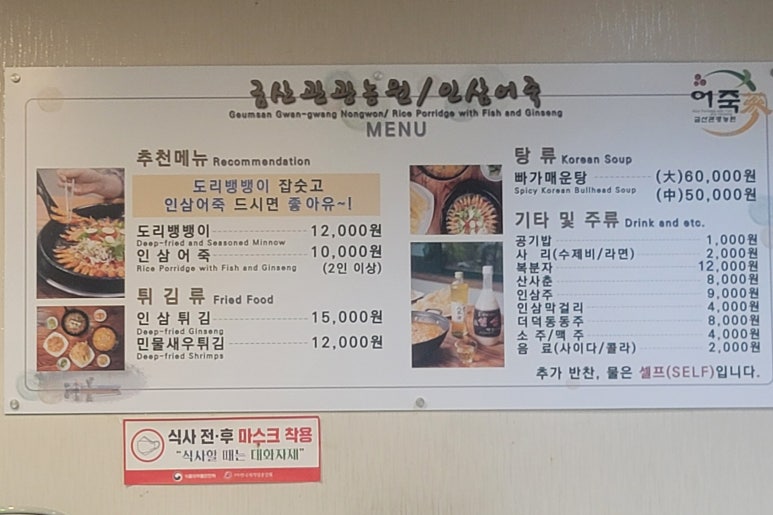 금산관광농원/인삼어죽
Geumsan Gwan-gwang Nongwon/ Rice Porridge with Fish and Ginseng
MENU
어죽
금산관광농원
추천메뉴 Recommendation
도리뱅뱅이 잡숫고
인삼어죽 드시면 좋아유~!
도리뱅뱅이 12,000원
Deep-fried and Seasoned Minnow
인 삼 어 죽 10,000원
Rice Porridge with Fish and Ginseng (2인 이상)
튀 김 류 Fried Food
인 삼 튀 김 15,000원
Deep-fried Ginseng
민물새우튀김 12,000원
Deep-fried Shrimps
탕 류 Korean Soup
빠가매운탕 (大)60,000원
Spicy Korean Bullhead Soup (中)50,000원
기타 및 주류 Drink and etc.
공기밥 1,000원
사 리(수제비/라면) 2,000원
복분자 12,000원
산사춘 8,000원
인삼주 9,000원
인삼막걸리 4,000원
더덕동동주 8,000원
소 주/맥 주 4,000원
음 료(사이다/콜라) 2,000원
추가 반찬, 물은 셀프(SELF)입니다.
식사 전·후 마스크 착용
"식사할 때는 대화자제"